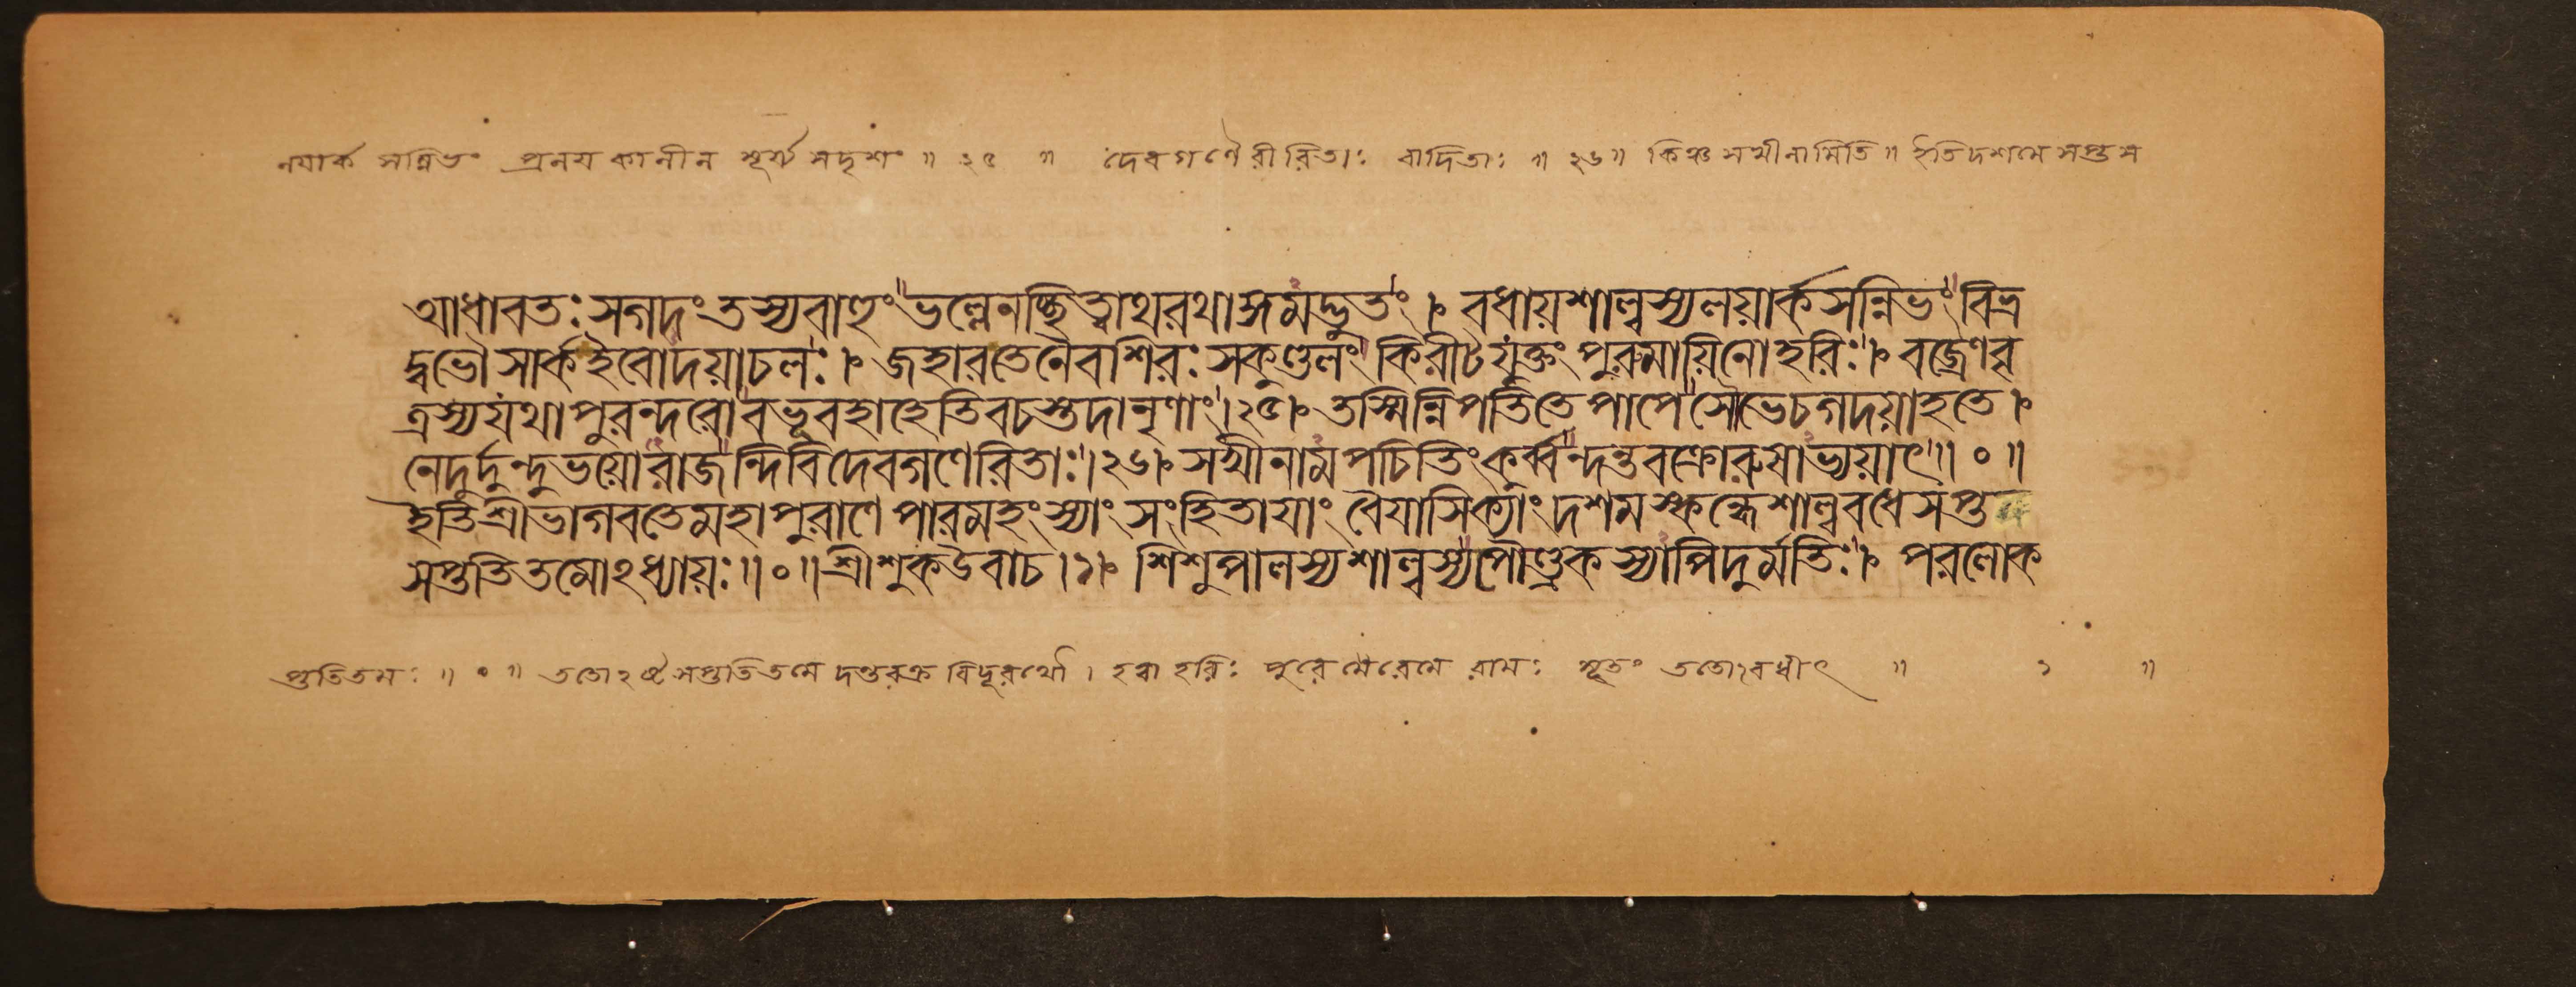 লয়ার্ক সন্নিভং প্রলয় কালীন সূর্য্য সদৃশং ॥ ২৫ ॥ দেবগণৈরীরিতাঃ বাদিতাঃ ॥ ২৬ ॥ কিঞ্চ সখীনামিতি ॥ ইতিদশমে সপ্তস
আধাবতঃ সগদং তস্যবাহুং ভল্লেনচ্ছিত্বাথরথাঙ্গমদ্ভুতং । বধায়শাল্বস্যলয়ার্কসন্নিভং বিভ্র
দ্বভৌসার্কইবোদয়াচলঃ । জহারতেনৈবশিরঃ সকুণ্ডলং কিরীটযুক্তং পুরুমায়িনোহরিঃ । বজ্রেণবৃ
ত্রস্যযথাপুরন্দরোবভূবহাহেতিবচস্তদানৃণাং ।২৫। তস্মিন্নিপতিতেপাপেসৌভেচগদয়াহতে ।
নেদুর্দুন্দুভয়োরাজন্দিবিদেবগণেরিতাঃ ।২৬। সখীনামপচিতিংকুর্ব্বন্দন্তবক্রোরুষাভ্যয়াৎ ॥ ০ ॥
ইতিশ্রীভাগবতেমহাপুরাণেপারমহংস্যাং সংহিতায়াং বৈয়াসিক্যাং দশমস্কন্ধেশাল্ববধেসপ্ত
সপ্ততিতমোঽধ্যায়ঃ ॥ ০ ॥ শ্রীশুকউবাচ ।১। শিশুপালস্যশাল্বস্যপৌণ্ড্রকস্যাপিদুর্মতিঃ । পরলোক
প্ততিতমঃ ॥ ০ ॥ ততোঽষ্টসপ্ততিতমে দন্তবক্র বিদূরথৌ । হত্বা হরিঃ পুরে রেমে রামঃ সূতং ততোঽবধীৎ ॥ ১ ॥